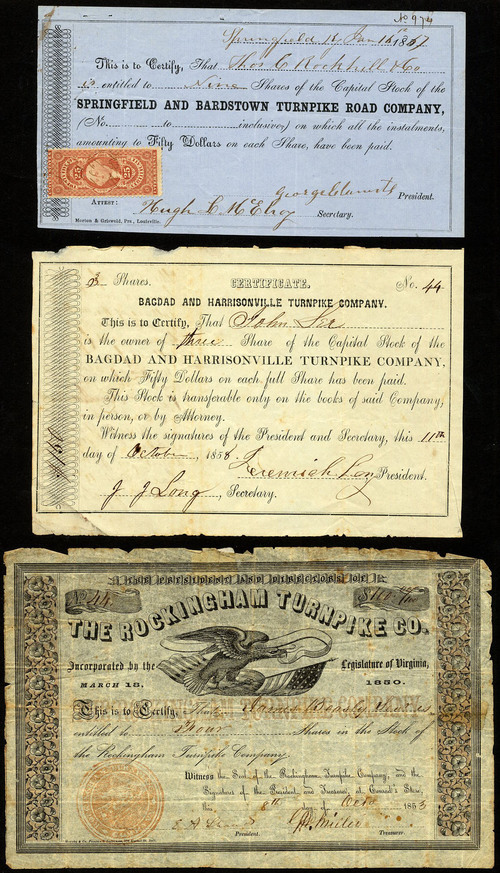 No 974
Springfield Ky Jan 16 1867
This is to Certify, That Thos C Rockhill & Co
is entitled to Nine Shares of the Capital Stock of the
SPRINGFIELD AND BARDSTOWN TURNPIKE ROAD COMPANY,
(No. to inclusive) on which all the instalments,
amounting to Fifty Dollars on each Share, have been paid.
President.
ATTEST: Hugh L McElroy Secretary.
Morton & Griswold, Prs., Louisville.
25 25
3 Shares. CERTIFICATE. No. 44
BAGDAD AND HARRISONVILLE TURNPIKE COMPANY.
This is to Certify, That John
is the owner of three Share of the Capital Stock of the
BAGDAD AND HARRISONVILLE TURNPIKE COMPANY,
on which Fifty Dollars on each full Share has been paid.
This Stock is transferable only on the books of said Company,
in person, or by Attorney.
Witness the signatures of the President and Secretary, this 11th
day of October, 1858. Jeremiah President.
J J Long, Secretary.
$150
THE PRESIDENT AND DIRECTORS OF
No 44 $100
THE ROCKINGHAM TURNPIKE CO.
Incorporated by the Legislature of Virginia,
MARCH 13, 1850.
This is to Certify, That James
entitled to Four Shares in the Stock of
the Rockingham Turnpike Company.
Witness the Seal of the Rockingham Turnpike Company, and the
Signatures of the President, and Treasurer, at Conrad's Store,
this 8th day of Octo 1853
President. Treasurer.